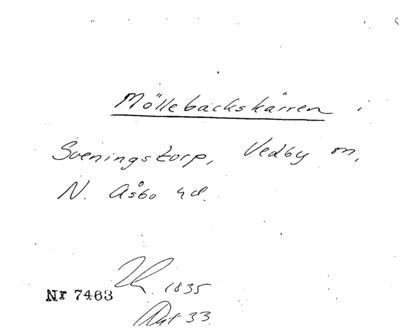 Möllebackskärren i
Sveningstorp, Vedby sn,
N. Åsbo hd.
1835
Nr 7463
Akt 33